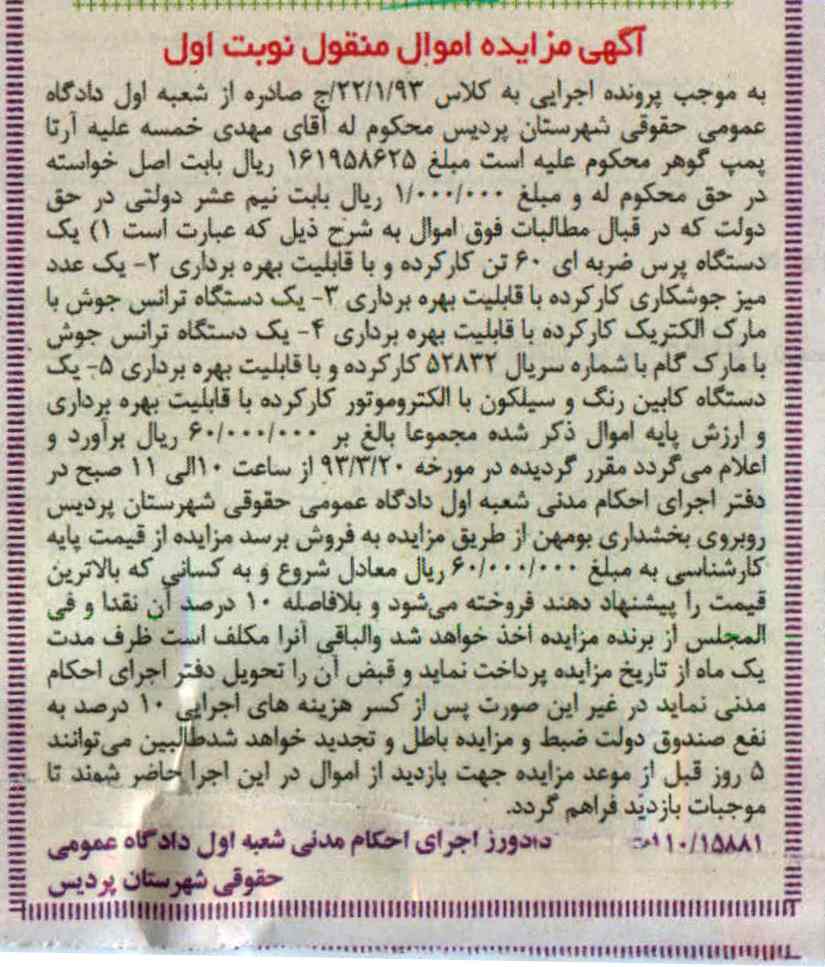 آگهی مزایده اموال منقول نوبت اول
به موجب پرونده اجرایی به کلاس ۲۲/۱/۹۳/ج صادره از شعبه اول دادگاه
عمومی حقوقی شهرستان پردیس محکوم له آقای مهدی خمسه علیه آرتا
پمپ گوهر محکوم علیه است مبلغ ۱۶۱۹۵۸۶۲۵ ریال بابت اصل خواسته
در حق محکوم له و مبلغ ۱/۰۰۰/۰۰۰ ریال بابت نیم عشر دولتی در حق
دولت که در قبال مطالبات فوق اموال به شرح ذیل که عبارت است ۱) یک
دستگاه پرس ضربه ای ۶۰ تن کارکرده و با قابلیت بهره برداری ۲- یک عدد
میز جوشکاری کارکرده با قابلیت بهره برداری ۳- یک دستگاه ترانس جوش با
مارک الکتریک کارکرده با قابلیت بهره برداری ۴- یک دستگاه ترانس جوش
با مارک گام با شماره سریال ۵۲۸۳۲ کارکرده و با قابلیت بهره برداری ۵- یک
دستگاه کابین رنگ و سیلکون با الکتروموتور کارکرده با قابلیت بهره برداری
و ارزش پایه اموال ذکر شده مجموعا بالغ بر ۶۰/۰۰۰/۰۰۰ ریال برآورد و
اعلام می‌گردد مقرر گردیده در مورخه ۹۳/۳/۲۰ از ساعت ۱۰الی ۱۱ صبح در
دفتر اجرای احکام مدنی شعبه اول دادگاه عمومی حقوقی شهرستان پردیس
روبروی بخشداری بومهن از طریق مزایده به فروش برسد مزایده از قیمت پایه
کارشناسی به مبلغ ۶۰/۰۰۰/۰۰۰ ریال معادل شروع و به کسانی که بالاترین
قیمت را پیشنهاد دهند فروخته می‌شود و بلافاصله ۱۰ درصد آن نقدا و فی
المجلس از برنده مزایده اخذ خواهد شد والباقی آنرا مکلف است ظرف مدت
یک ماه از تاریخ مزایده پرداخت نماید و قبض آن را تحویل دفتر اجرای احکام
مدنی نماید در غیر این صورت پس از کسر هزینه های اجرایی ۱۰ درصد به
نفع صندوق دولت ضبط و مزایده باطل و تجدید خواهد شدطالبین می‌توانند
۵ روز قبل از موعد مزایده جهت بازدید از اموال در این اجرا حاضر شوند تا
موجبات بازدید فراهم گردد.
۱۱۰/۱۵۸۸۱ دادورز اجرای احکام مدنی شعبه اول دادگاه عمومی
حقوقی شهرستان پردیس